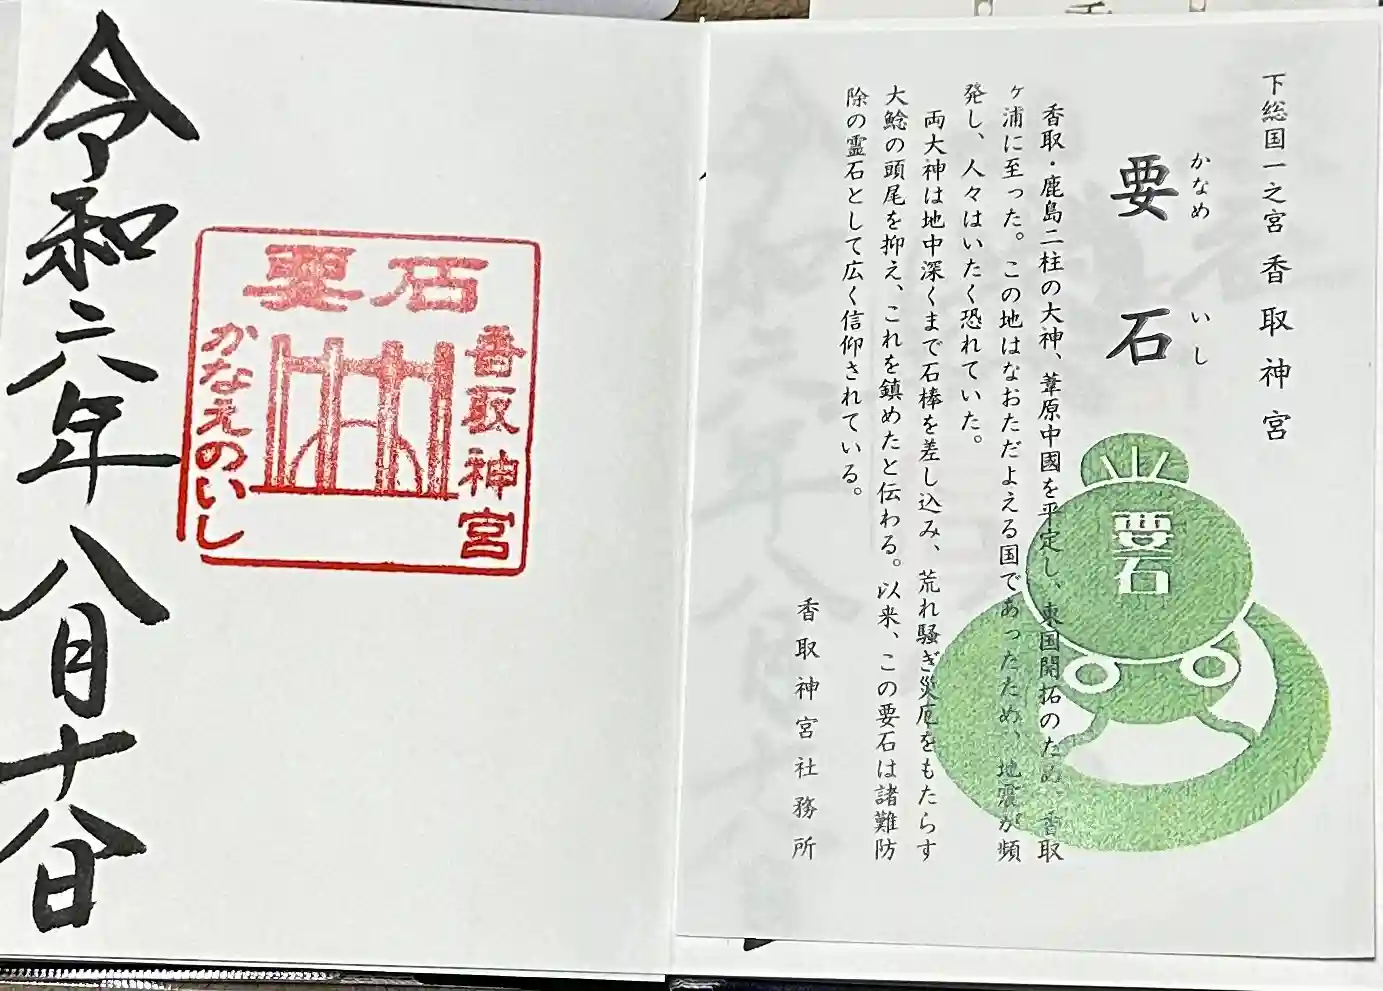 下総国一之宮 香取神宮
かなめ いし
要石
香取・鹿島二柱の大神、葦原中國を平定し、東国開拓のため、香取
ヶ浦に至った。この地はなおただよえる国であったため、地震が頻
発し、人々はいたく恐れていた。
両大神は地中深くまで石棒を差し込み、荒れ騒ぎ災厄をもたらす
大鯰の頭尾を抑え、これを鎮めたと伝わる。以来、この要石は諸難防
除の霊石として広く信仰されている。
香取神宮社務所
要石
要石
香取神宮
かなえのいし
令和六年八月十八日